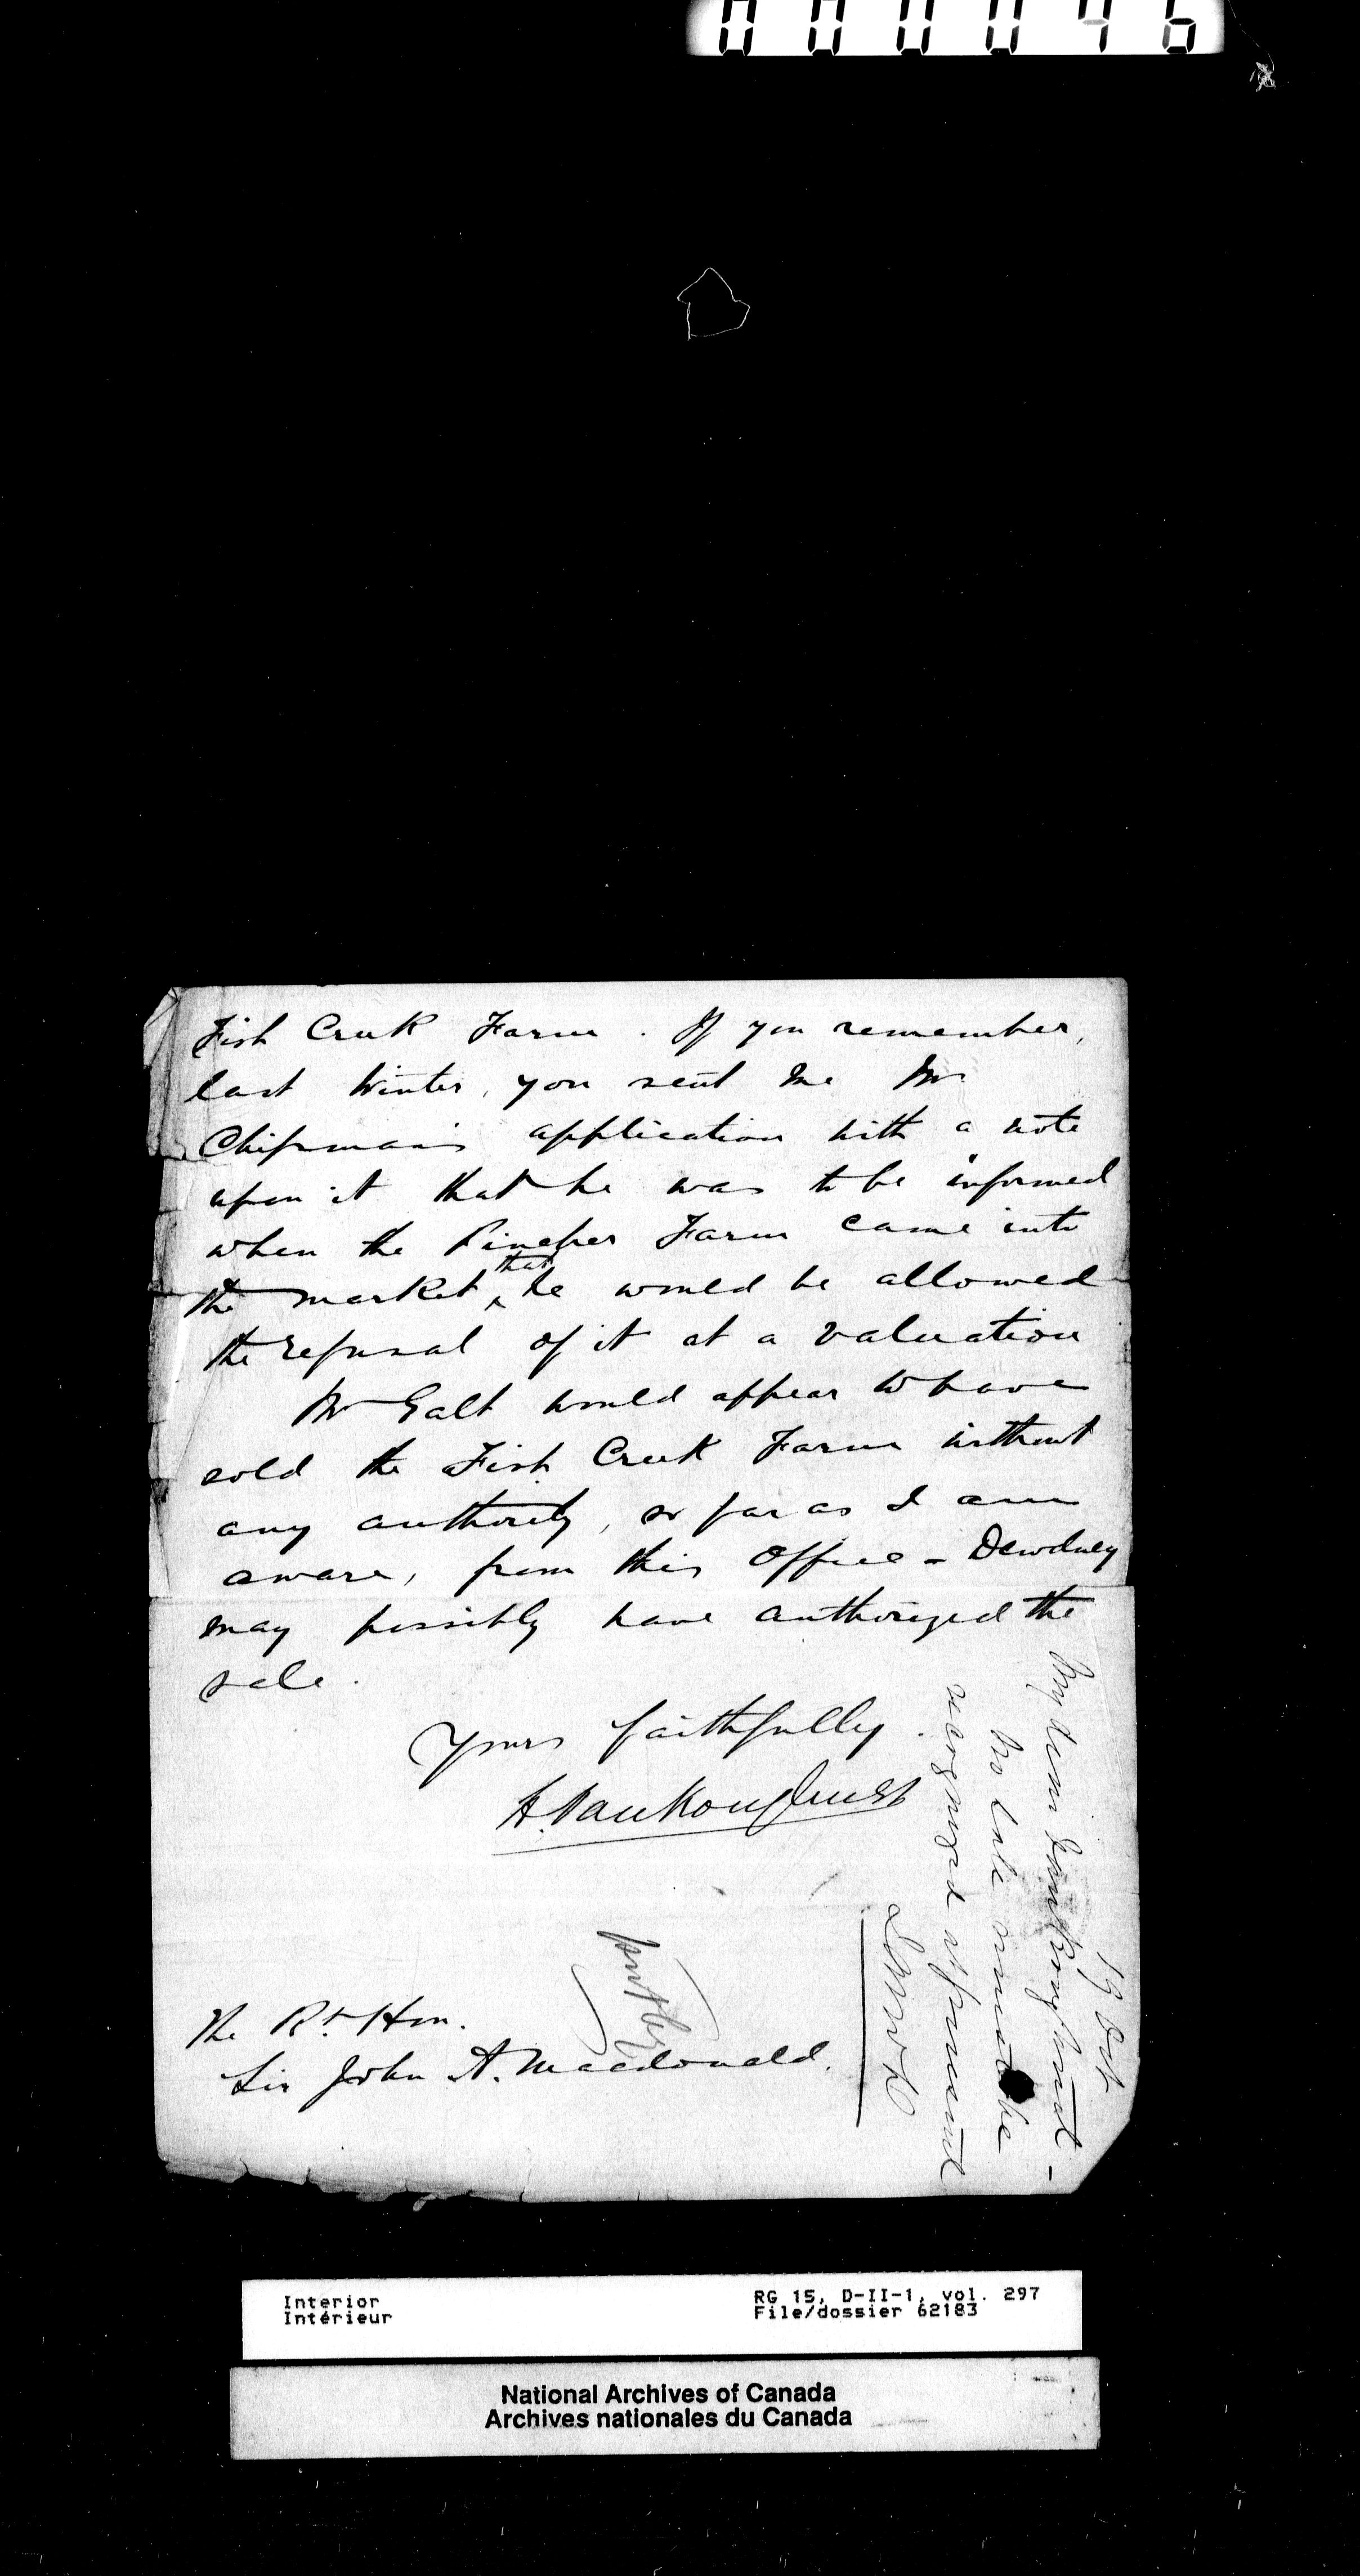 000046
Fish Creek Farm. If you remember,
last Winter, you sent me Mr
Chipman's application with a note
upon it that he was to be informed
when the Pincher Farm came into
the market, that he would be allowed
the refusal of it at a valuation
Mr Galt would appear to have
sold the Fish Creek Farm without
any authority, so far as I am
aware, from this Office - Dewdney
may possibly have authorized the
sale.
Yours faithfully.
L. VanKoughnet
The Rt. Hon.
Sir John A. Macdonald.
19 Oct
My dear VanKoughnet -
No sale must be
recognized at present
Interior
Intérieur
RG 15, D-II-1, vol. 297
File/dossier 62183
National Archives of Canada
Archives nationales du Canada